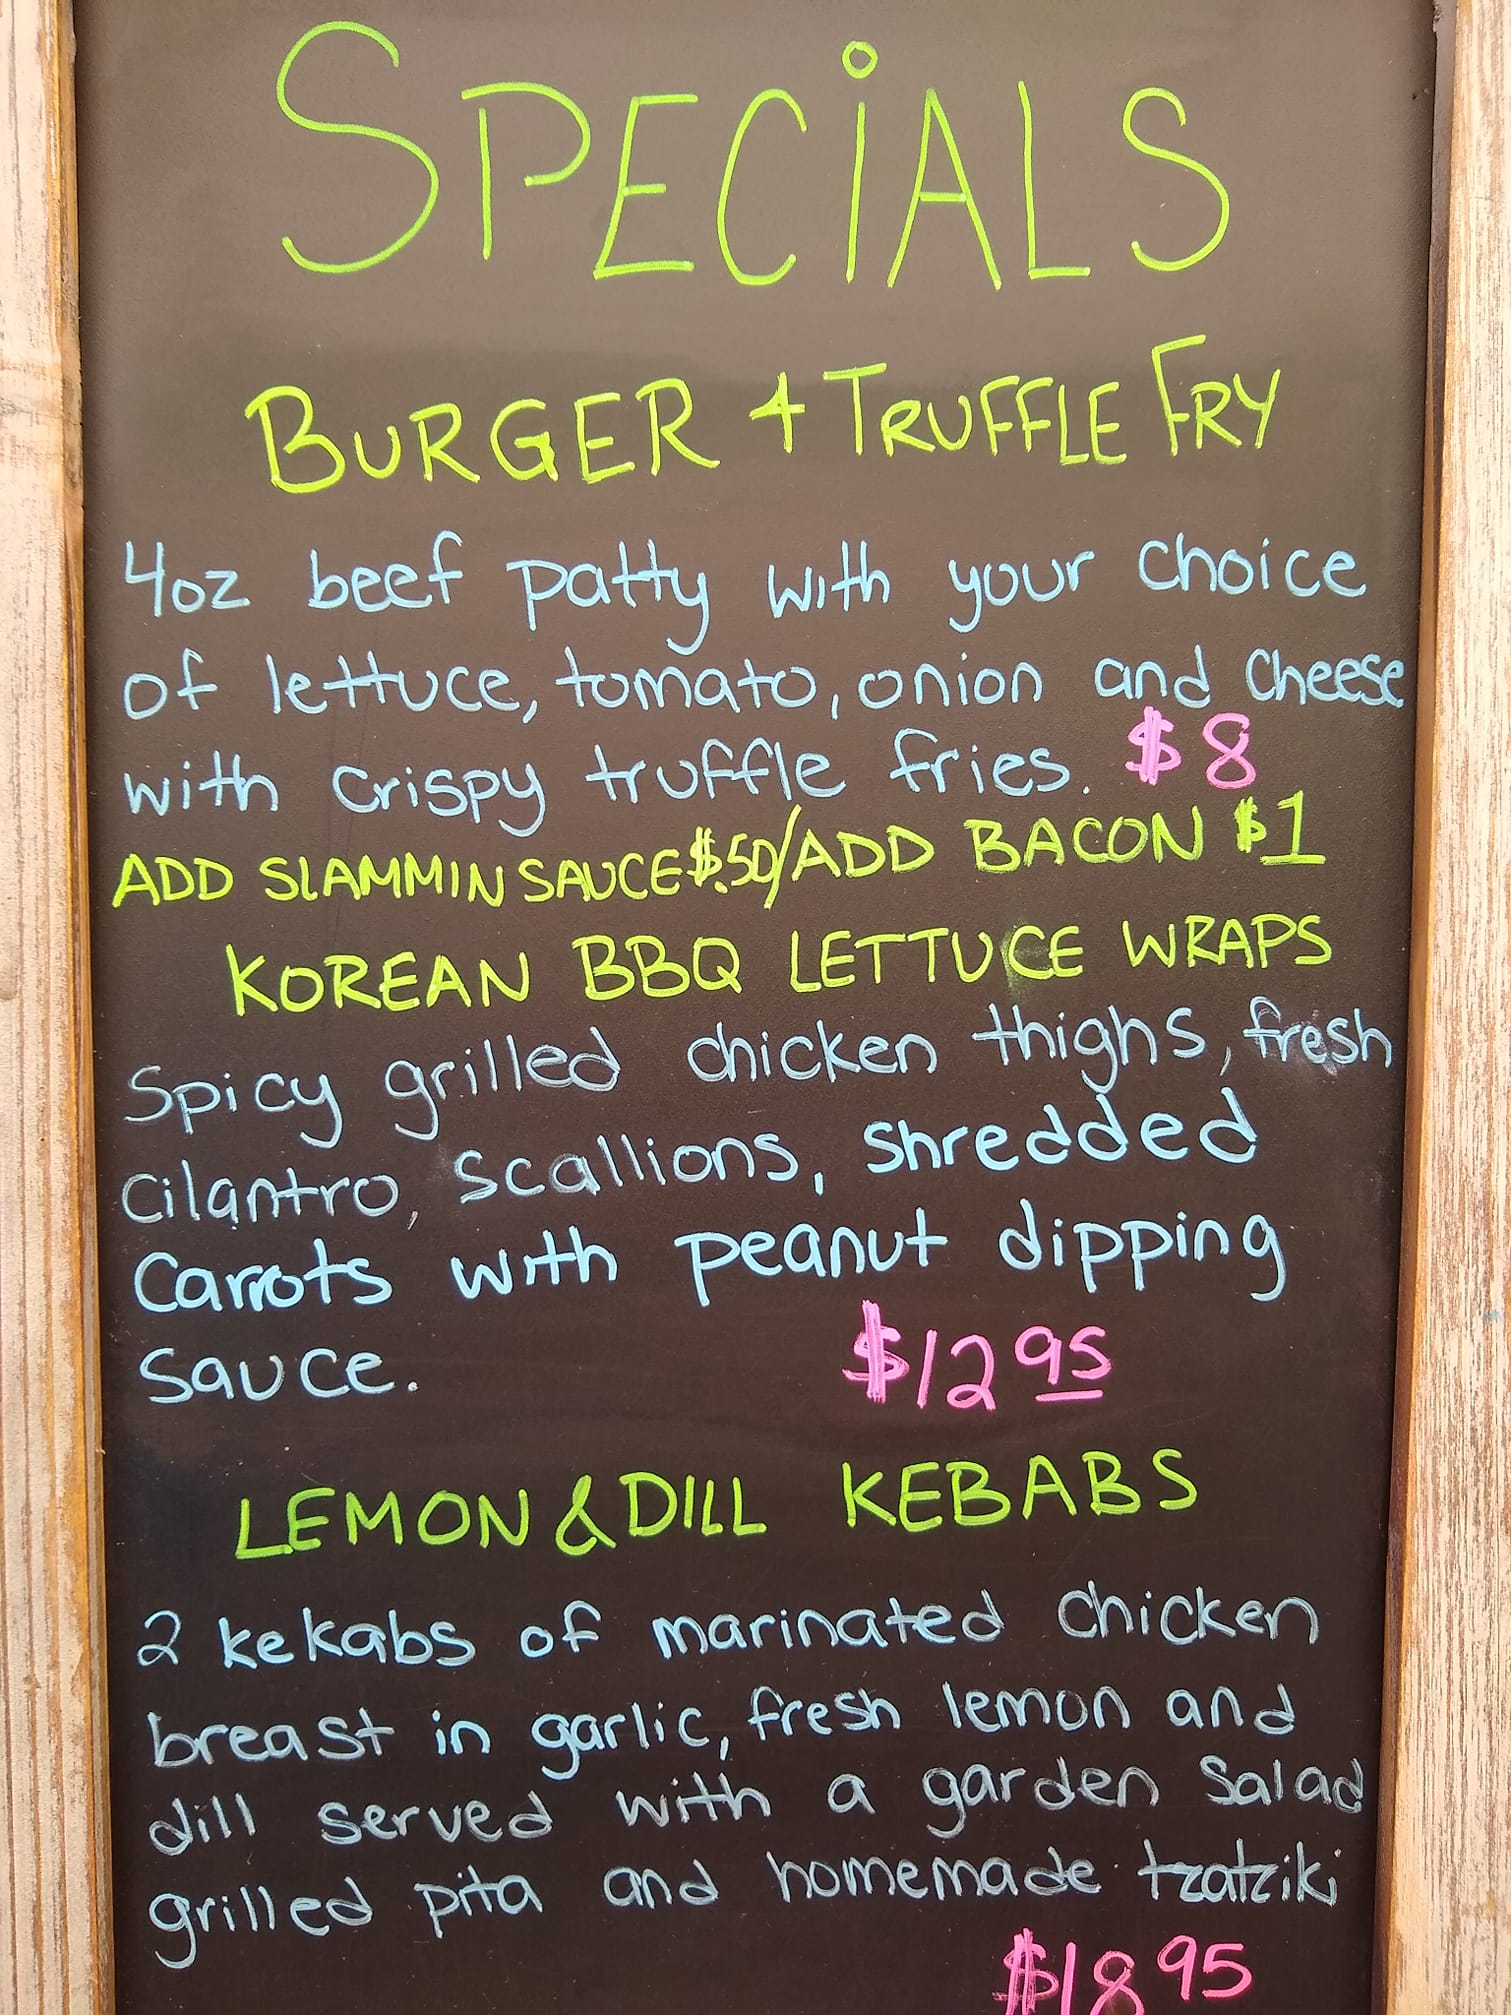 SPECiALS
BURGER + TRUFFLE FRY
4oz beef patty with your choice
of lettuce, tomato, onion and cheese
with crispy truffle fries. $8
ADD SLAMMIN SAUCE $.50/ADD BACON $1
KOREAN BBQ LETTUCE WRAPS
Spicy grilled chicken thighs, fresh
cilantro, scallions, shredded
carrots with peanut dipping
sauce. $12 95
LEMON & DILL KEBABS
2 kekabs of marinated chicken
breast in garlic, fresh lemon and
dill served with a garden salad
grilled pita and homemade tzatziki
$18 95